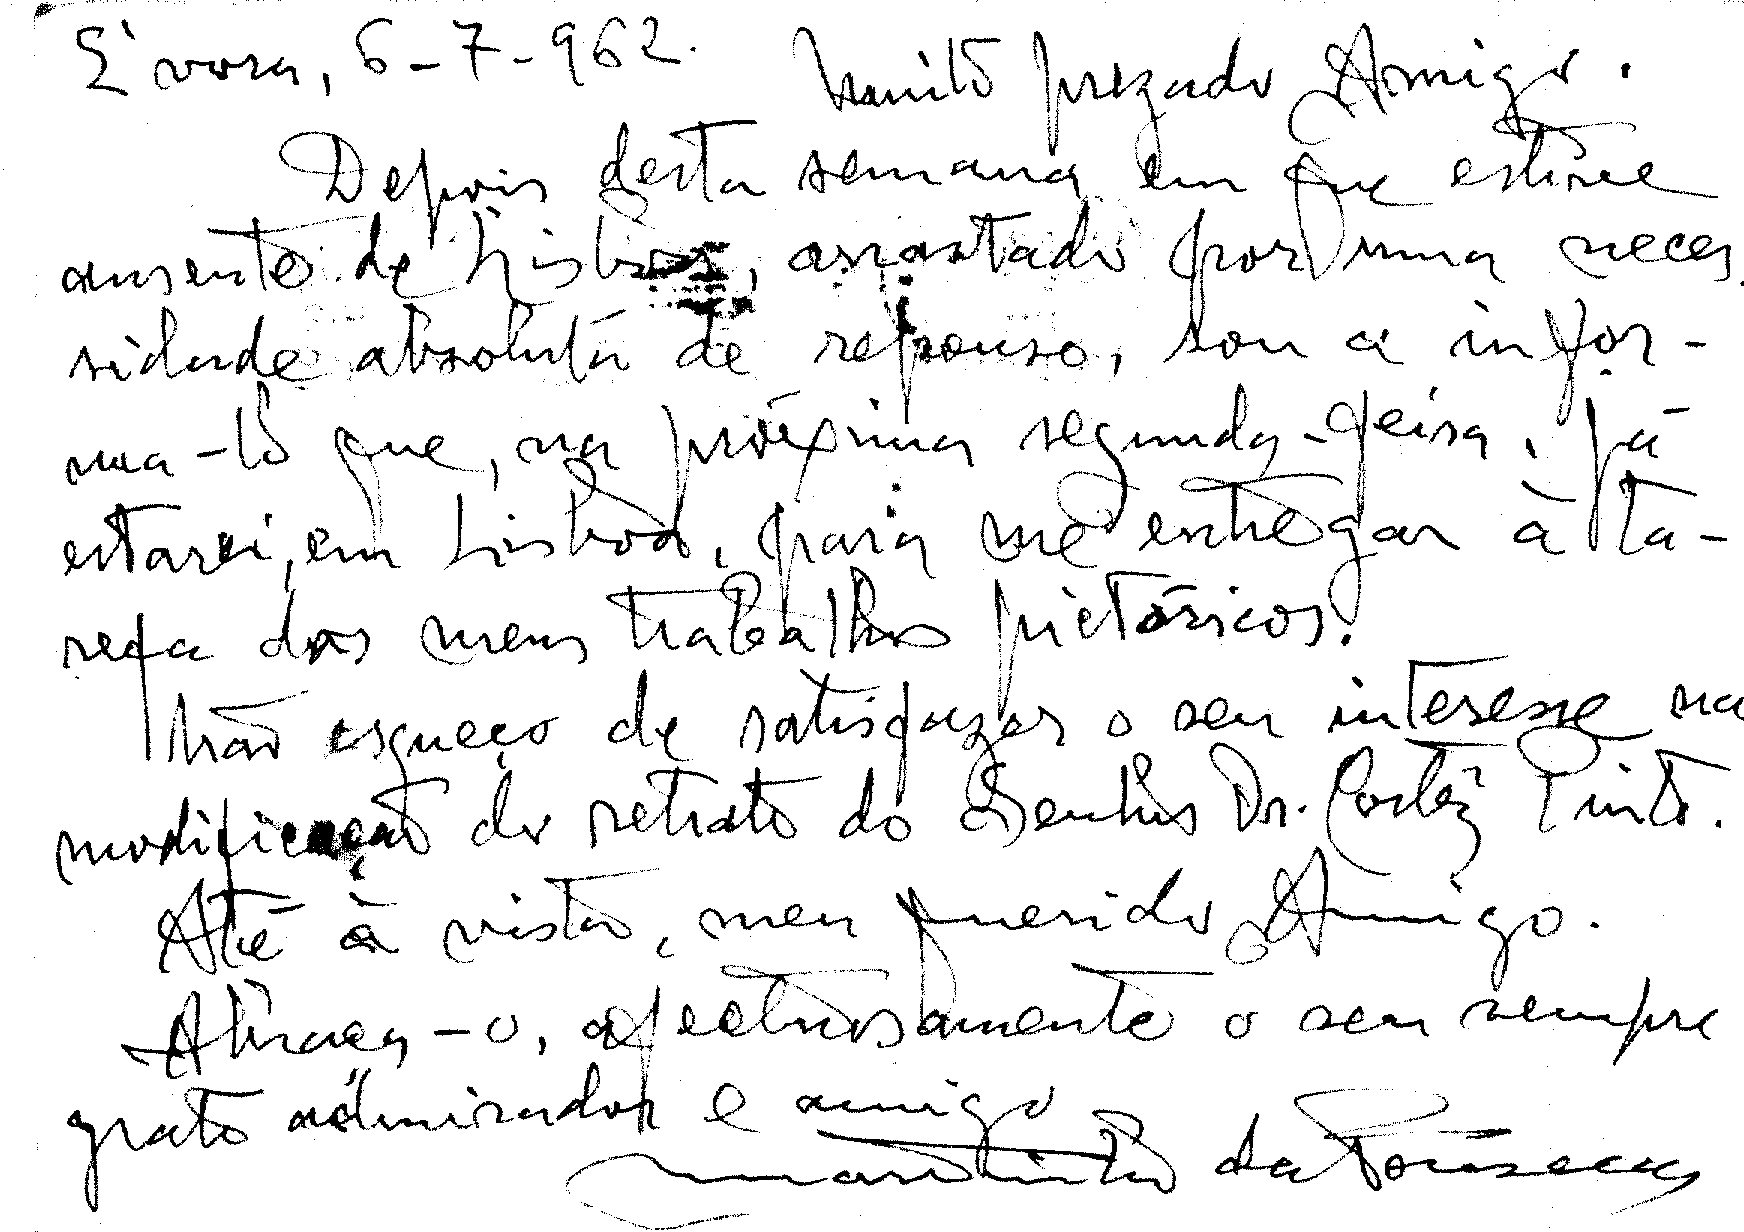 Évora, 6-7-962. Muito prezado Amigo.
Depois desta semana em que estive
ausente de Lisboa, arrastado por uma neces
sidade absoluta de repouso, sou a infor-
ma-lo que, na próxima segunda-feira, já
estarei, em Lisboa, para me entregar à ta-
refa dos meus trabalhos pictóricos.
Não esqueço de satisfazer o seu interesse na
modificação do retrato do Senhor Dr. Cortêz Pinto.
Até à vista, meu querido Amigo.
Abraça-o, afectuosamente o seu sempre
grato admirador e amigo
Martinho da Fonseca